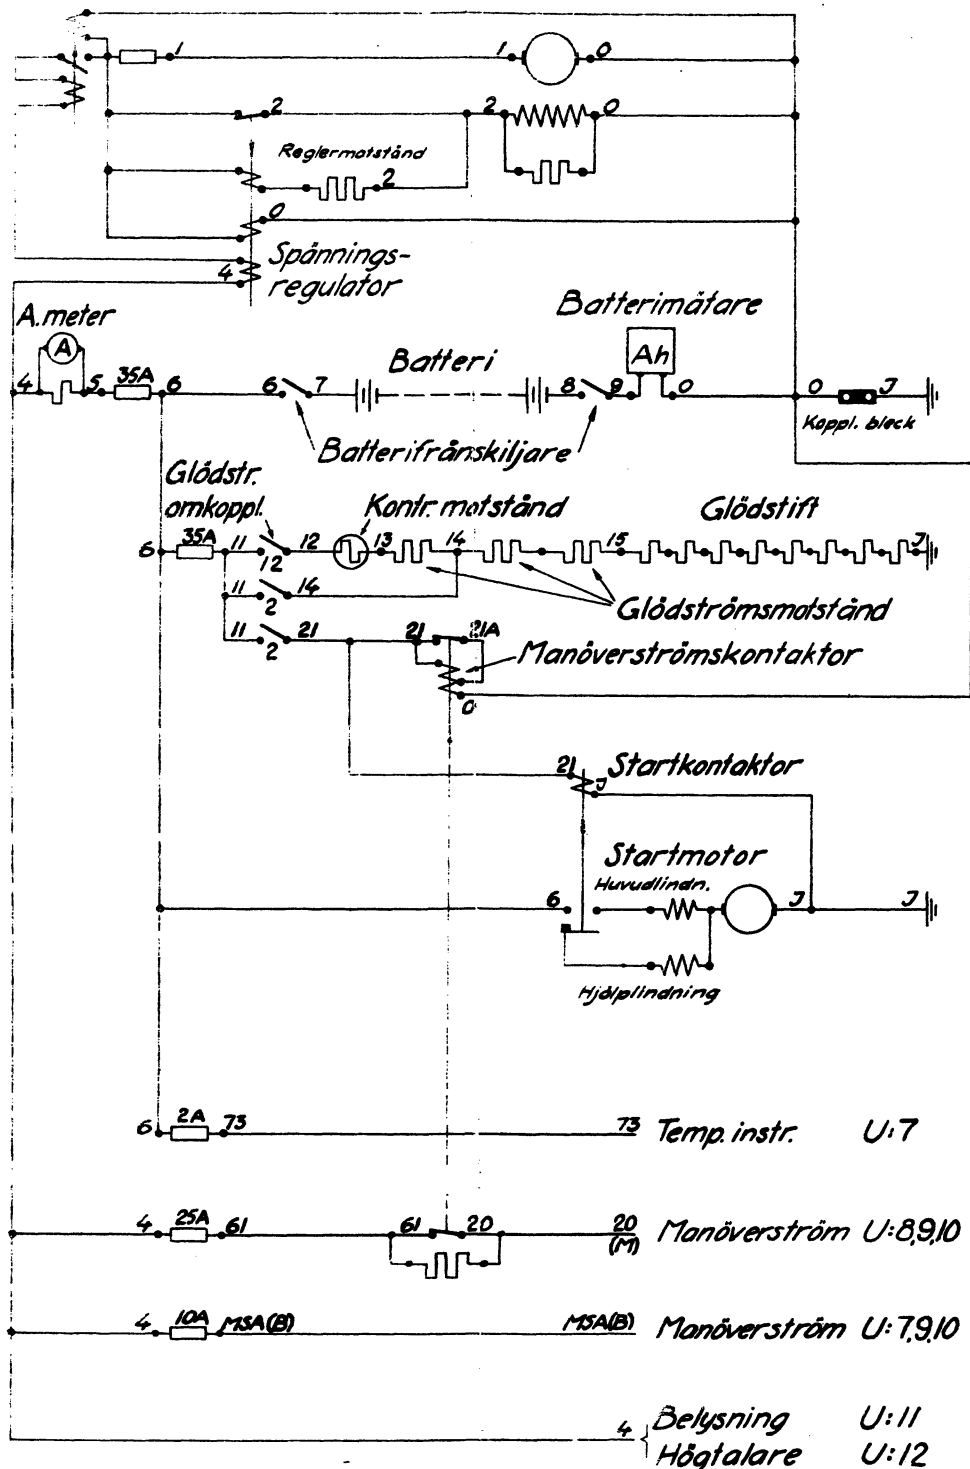 1 1 0
2 2 0
Reglermotstånd
2
0
Spännings-
4
regulator
A.meter
A
Batterimätare
Ah
Batteri
4 5 35A 6 6 7 8 9 0 0 J
Koppl. bleck
Batterifrånskiljare
Glödstr.
omkoppl.
Kontr. motstånd
Glödstift
6 35A 11 12 12 13 14 15 J
11 2 14
Glödströmsmotstånd
11 2 21 21 21A
Manöverströmskontaktor
0
21 J Startkontaktor
Startmotor
Huvudlindn.
6 J J
Hjälplindning
6 2A 73 73 Temp. instr. U:7
4 25A 61 61 20 20 (M) Manöverström U:8,9,10
4 10A MSA(B) MSA(B) Manöverström U:7,9,10
4 Belysning U:11
Högtalare U:12